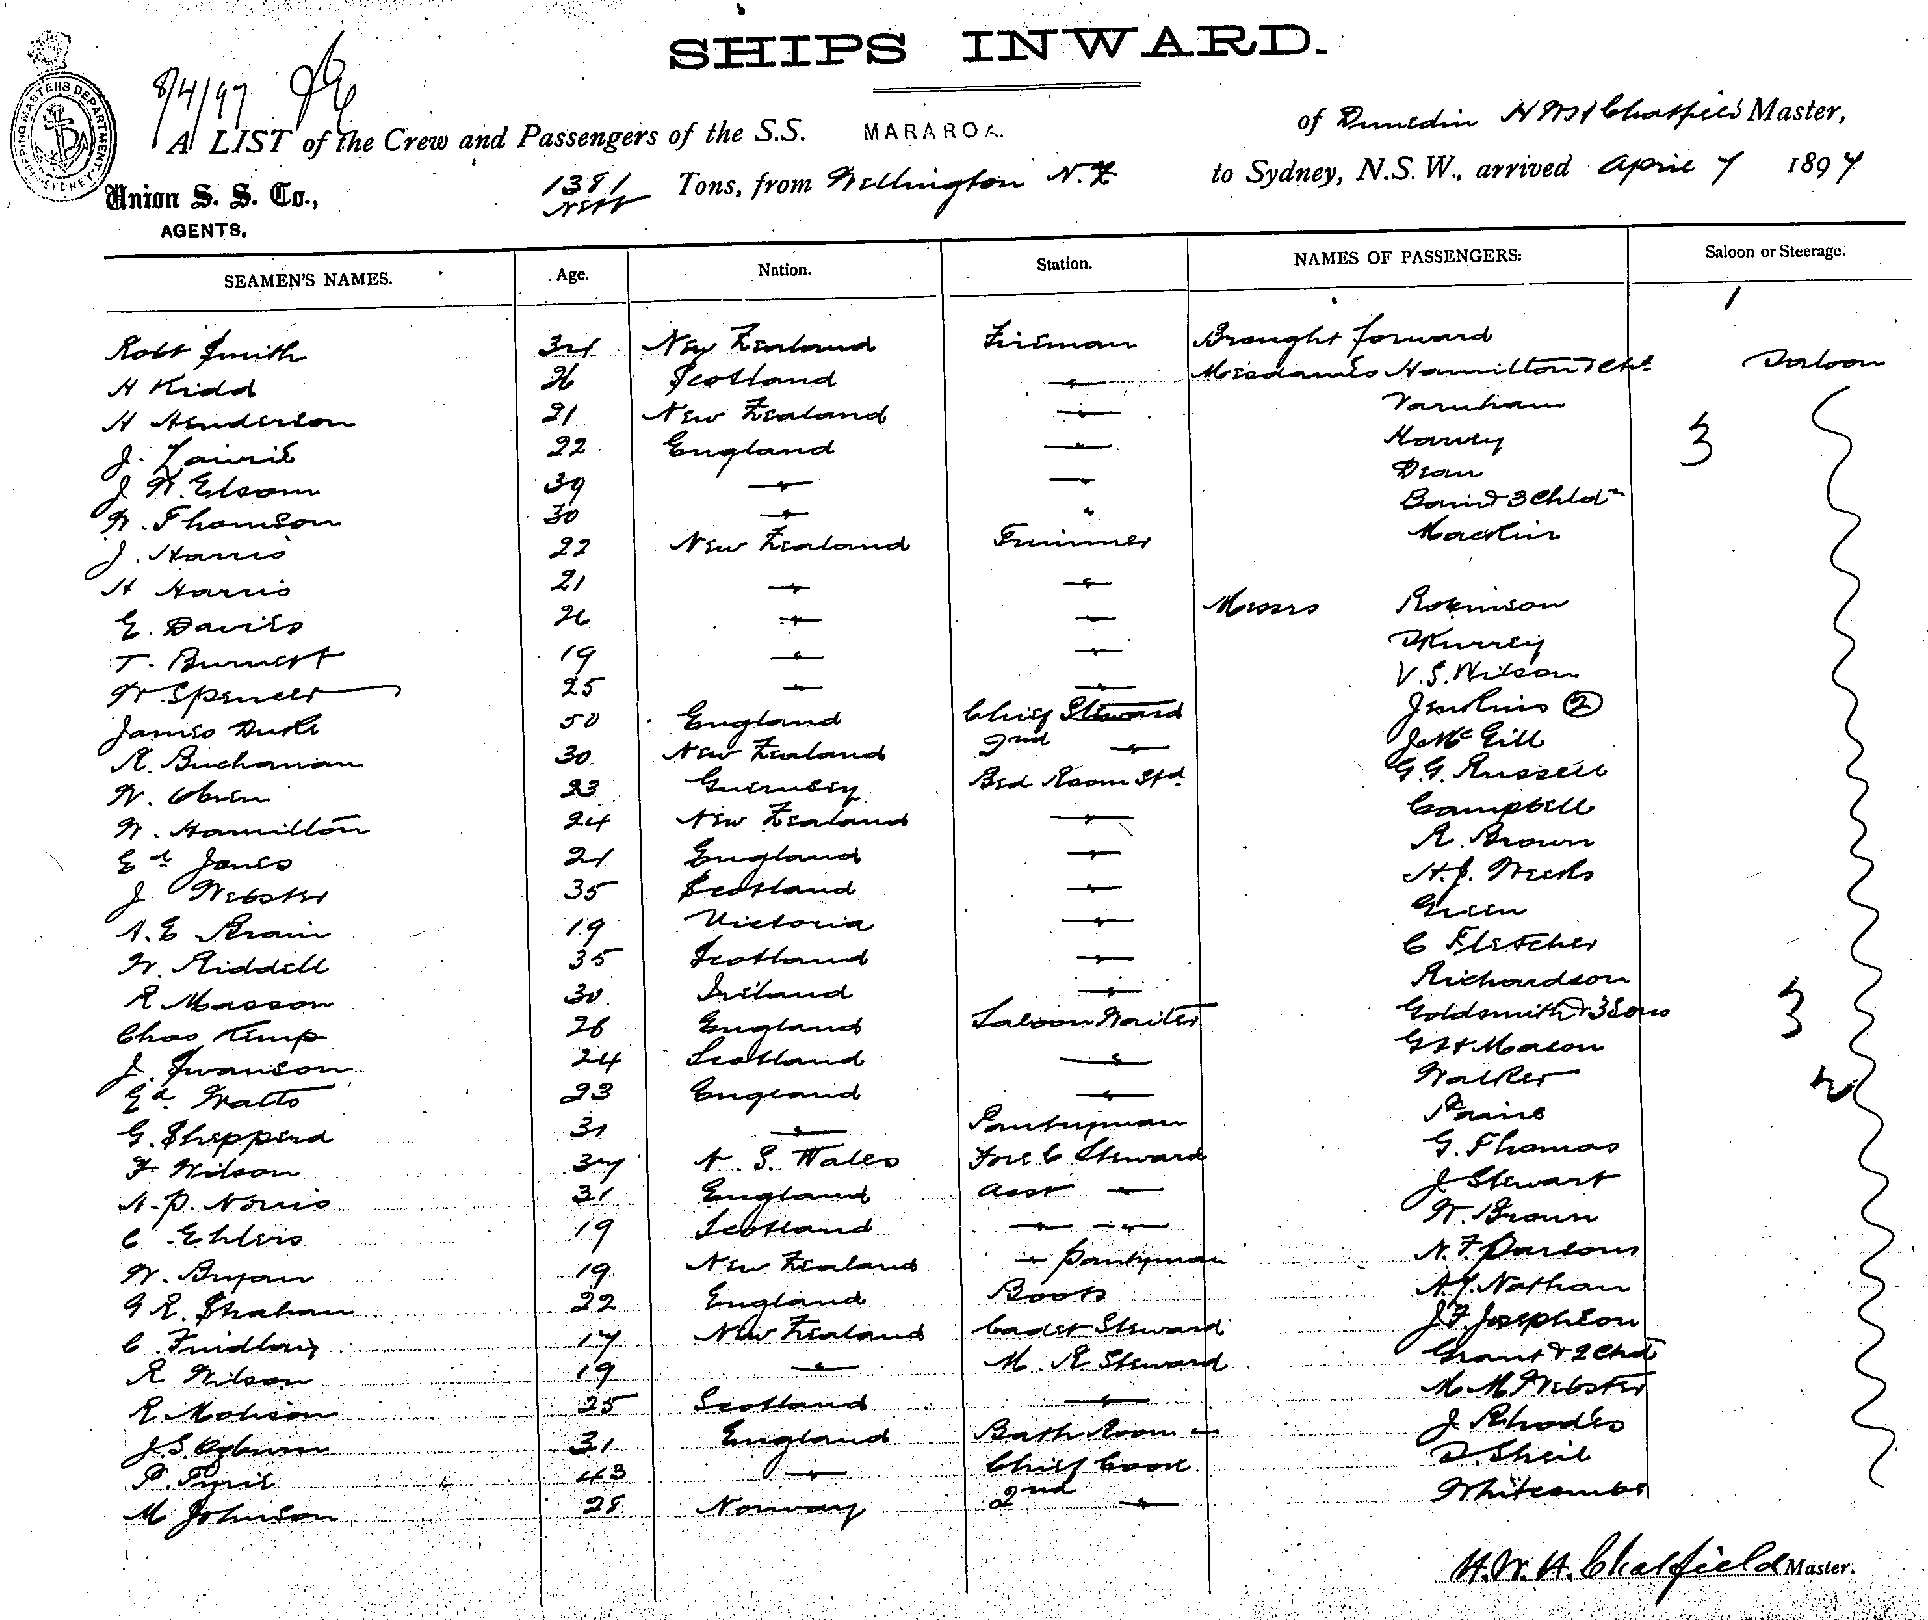 SHIPS INWARD.
8/4/97
A LIST of the Crew and Passengers of the S.S. MARAROA. of Dunedin H W H Chatfield Master,
Union S. S. Co., AGENTS. 1381 Nett Tons, from Wellington N.Z to Sydney, N.S.W., arrived April 7 1897
SEAMEN'S NAMES. Age. Nation. Station. NAMES OF PASSENGERS: Saloon or Steerage.
1
Robt Smith 34 New Zealand Fireman Brought forward
H Kidd 26 Scotland " Mesdames Hamilton & Chd Saloon
H Henderson 21 New Zealand " Varnham
J. Lawrie 22 England " Hardy 3
J W. Elsom 39 " " Dean
W. Thomson 30 " " Bain & 3 Chldn
J. Harris 22 New Zealand Trimmer Macklin
H Harris 21 " "
E. Davies 26 " " Messrs Robinson
T. Burnett 19 " "
W. Spencer 25 " " V. S. Wilson
James Duke 50 England Chief Steward Jenkins 2
R. Buchanan 30 New Zealand 2nd " J Mc Gill
W. Obrien 23 Guernsey Bed Room Std G. G. Russell
W. Hamilton 24 New Zealand " Campbell
Ed Jones 21 England " R. Brown
J Webster 35 Scotland " H. J. Weeks
A. E Brain 19 Victoria " Green
W. Riddell 35 Scotland " C Fletcher
R Masson 30 Ireland " Richardson
Chas Kemp 26 England Saloon Waiter Goldsmith & 3 Sons 3
J. Swanson 24 Scotland " G H Macon
Ed. Watts 23 England " Walker
G. Shepperd 31 " Pantryman Paine
F Wilson 37 N. S. Wales Fore C. Steward G. Thomas
A. P. Norris 31 England Asst " J Stewart
C Ehlers 19 Scotland " " W. Brown
W. Bryan 19 New Zealand " Pantryman N. F. Parsons
G R. Strahan 22 England Boots A. J. Nathan
C Findlay 17 New Zealand Cadet Steward J. F. Josephson
R Wilson 19 " M. R Steward Grant & 2 Chd
R Mohison 25 Scotland " M M Webster
J. S. Ogburn 31 England Bath Room " J Rhodes
P. Tyril 43 " Chief Cook D. Sheil
M Johnson 28 Norway 2nd " Whitcombe
H. W. H. Chatfield Master.